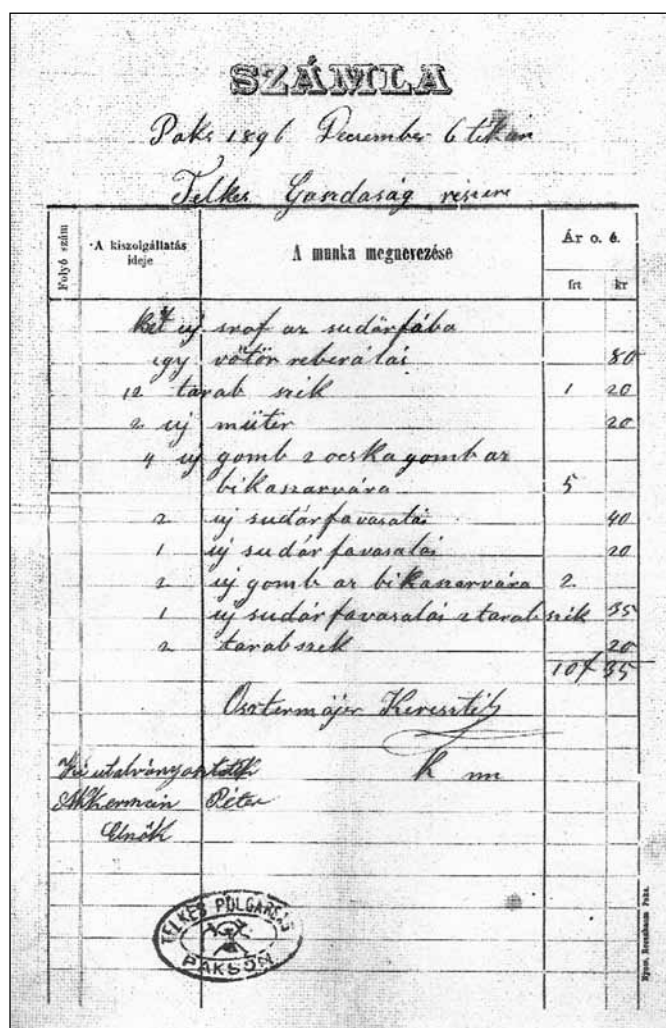 SZÁMLA
Paks 1896 December 6 tikán
Telkes Gazdaság részire
Folyó szám
A kiszolgáltatás ideje
A munka megnevezése
Ár o. é.
frt kr
Két új sraf az sudárfába
egy vötör reberálás 80
12 tarab szík 1 20
2 új müter 20
4 új gomb 2 ocska gomb az
bikaszarvára 5
2 új sudárfavasalás 40
1 új sudárfavasalás 20
2 új gomb az bikaszarvára 2
1 új sudárfavasalás 2 tarab szík 35
2 tarab szek 20
10f 35
Osztermájer Keresztély
K
Ki utalványoztatik
Akkermann Péter
Elnök
TELKES POLGÁRSÁG
PAKSON
Nyom. Rosenbaum Paks.